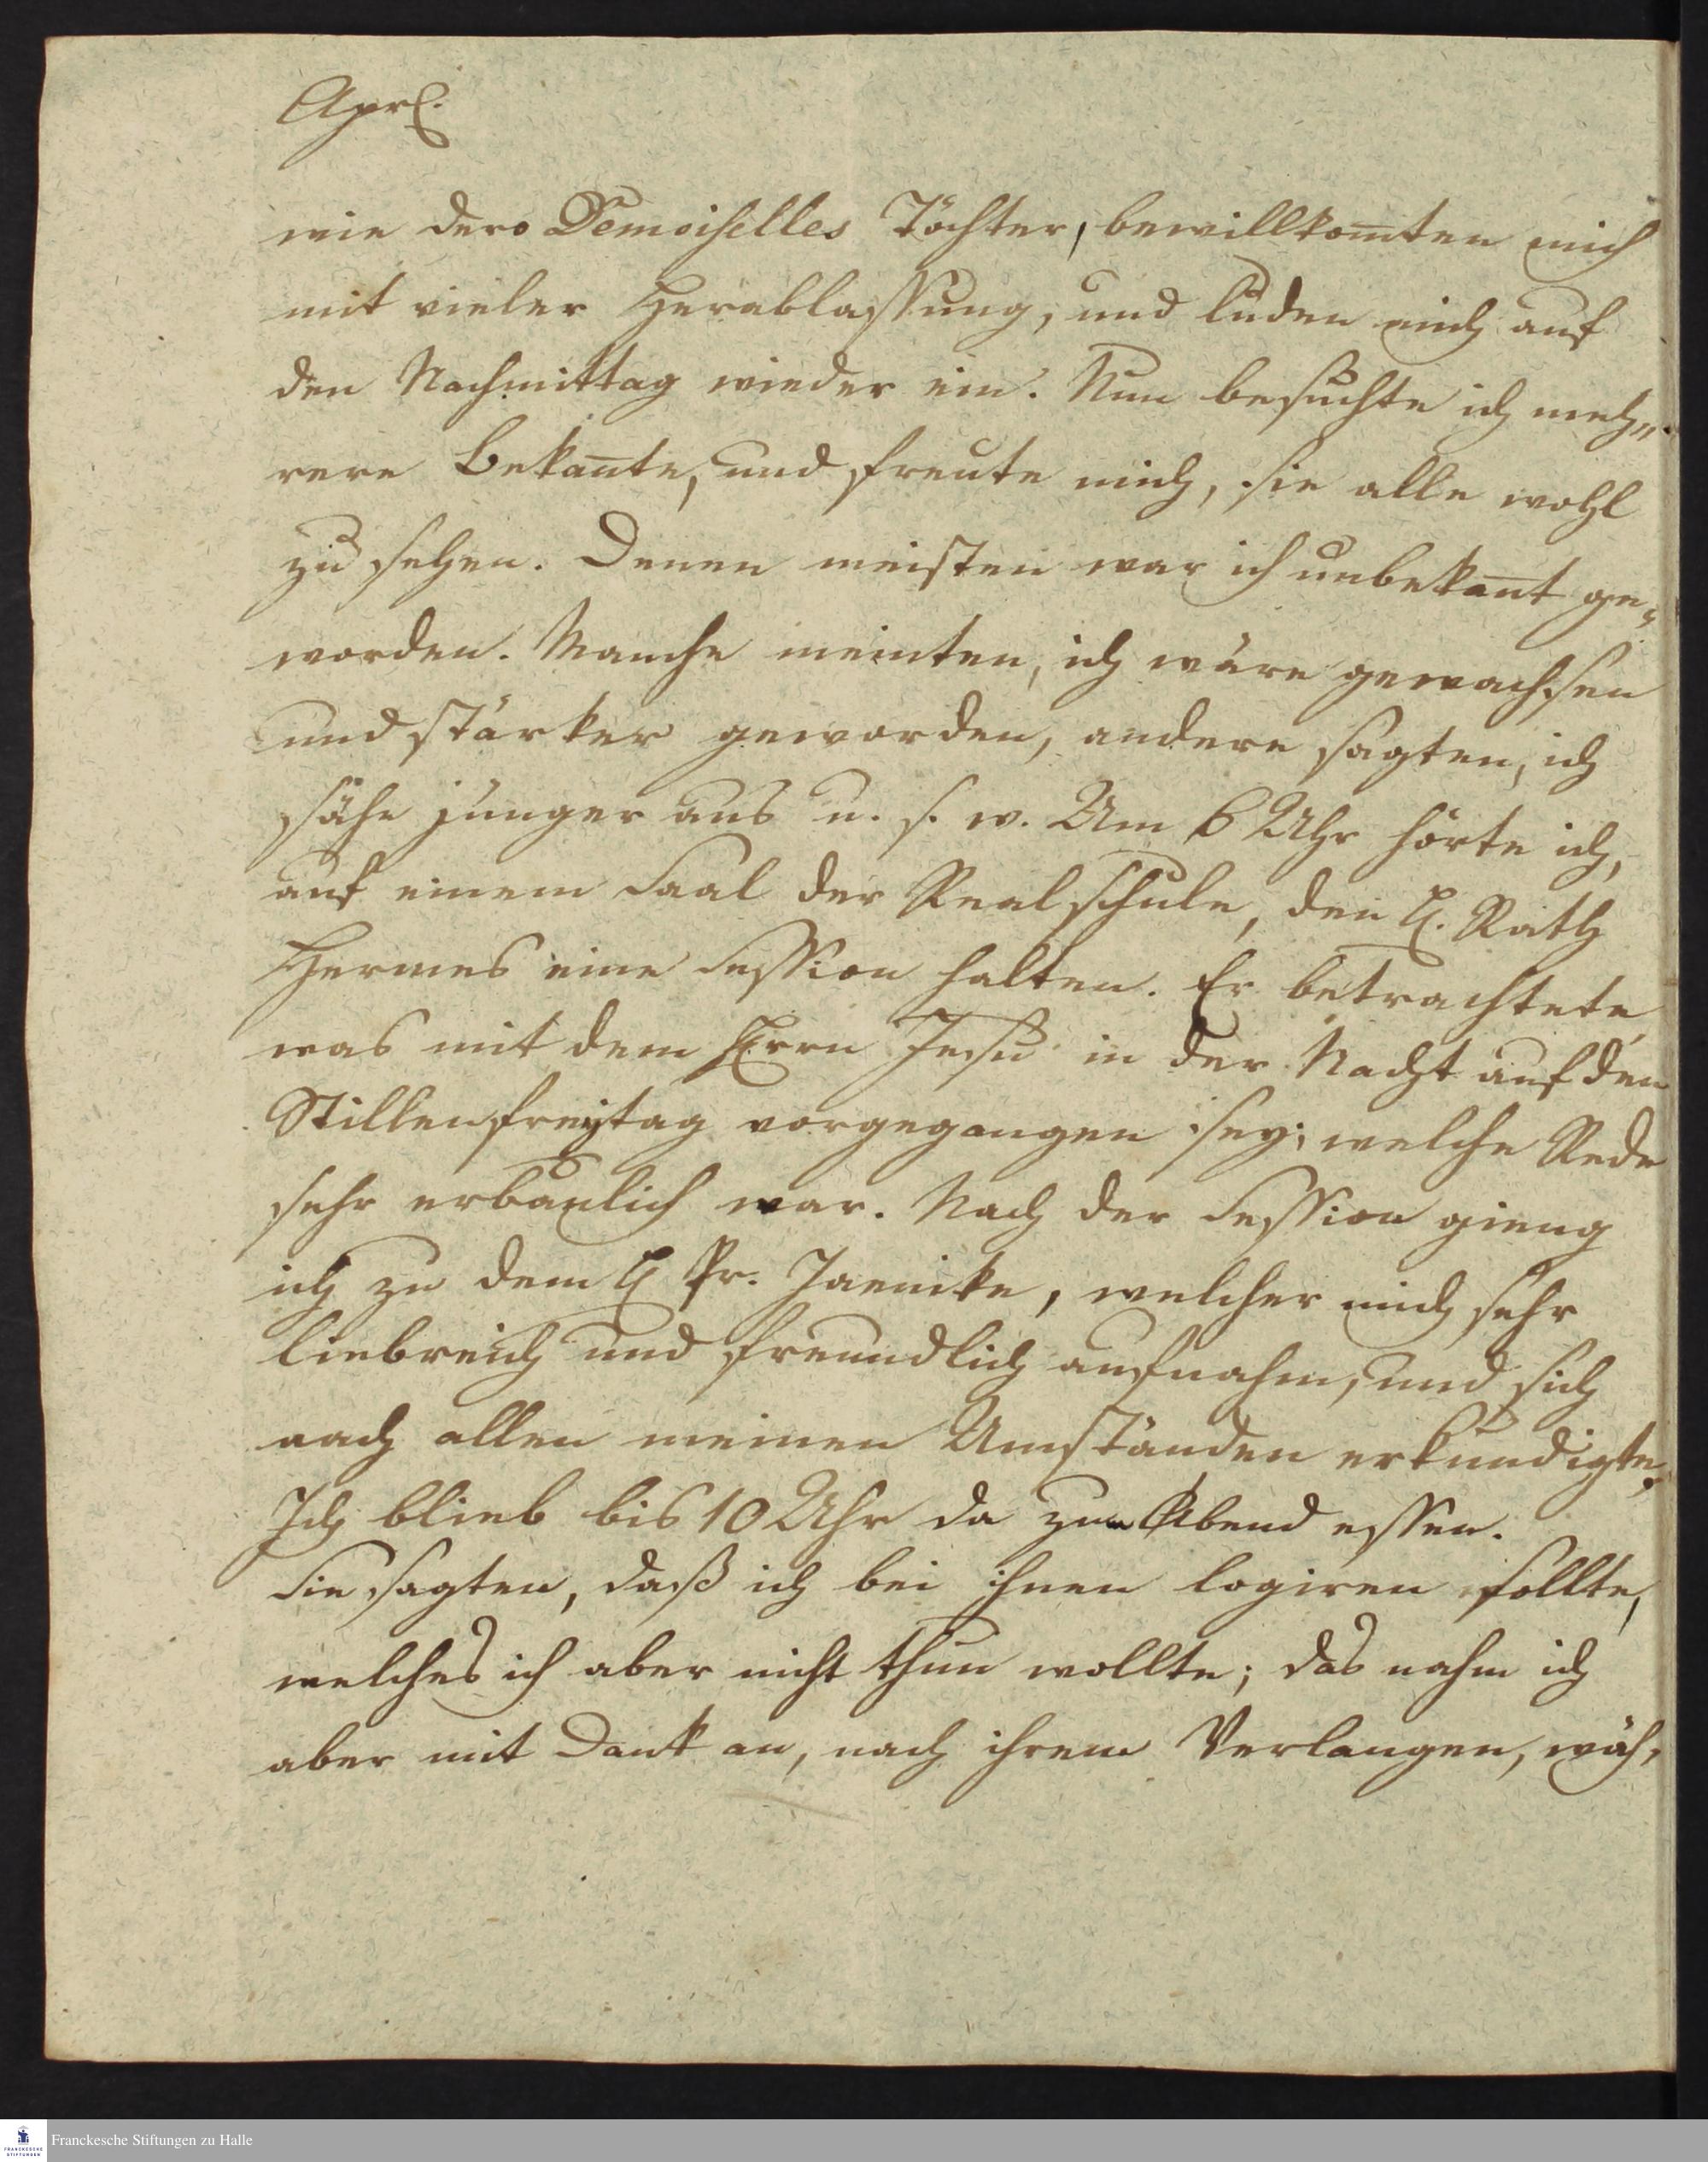 Aprl.
wie dero Demoiselles Töchter, bewillkom̅ten mich
mit vieler Herablassung, und luden mich auf
den Nachmittag wieder ein. Nun besuchte ich meh„
rere Bekan̅te, und freute mich, sie alle wohl
zu sehen. Denen meisten war ich unbekan̅t ge„
worden. Manche meinten, ich wäre gewachsen
und stärker geworden, andere sagten, ich
sähe jünger aus u. s. w. Um 6 Uhr hörte ich,
auf einem Saal der Realschule, den H. Rath
Hermes eine Session halten. Er betrachtete,
was mit dem Herrn Jesu in der Nacht auf den
Stillenfreytag vorgegangen sey; welche Rede
sehr erbaulich war. Nach der Session gieng
ich zu dem H Pr. Jaenike, welcher mich sehr
liebreich und freundlich aufnahm, und sich
nach allen meinen Umständen erkundigte.
Ich blieb bis 10 Uhr da zum Abend essen.
Sie sagten, daß ich bei ihnen logiren sollte,
welches ich aber nicht thun wollte; das nahm ich
aber mit Dank an, nach ihrem Verlangen, wäh„
FRANCKESCHE STIFTUNGEN
Franckesche Stiftungen zu Halle